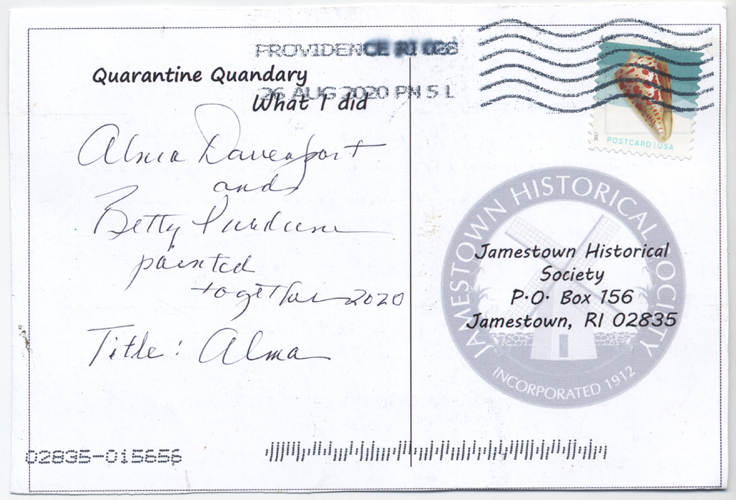 PROVIDENCE RI 028
26 AUG 2020 PM 5 L
Quarantine Quandary
What I did
Alma Davenport
and
Betty
painted
together 2020
Title: Alma
POSTCARD|USA
2017
JAMESTOWN HISTORICAL SOCIETY
INCORPORATED 1912
Jamestown Historical
Society
P.O. Box 156
Jamestown, RI 02835
02835-015656